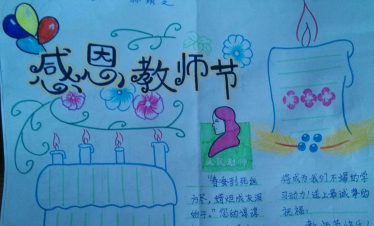 感恩教师节
人民教师
"春蚕到死丝
方尽,蜡炬成灰泪
将成为我们不懈的学
习动力!送上最诚挚的
祝福: